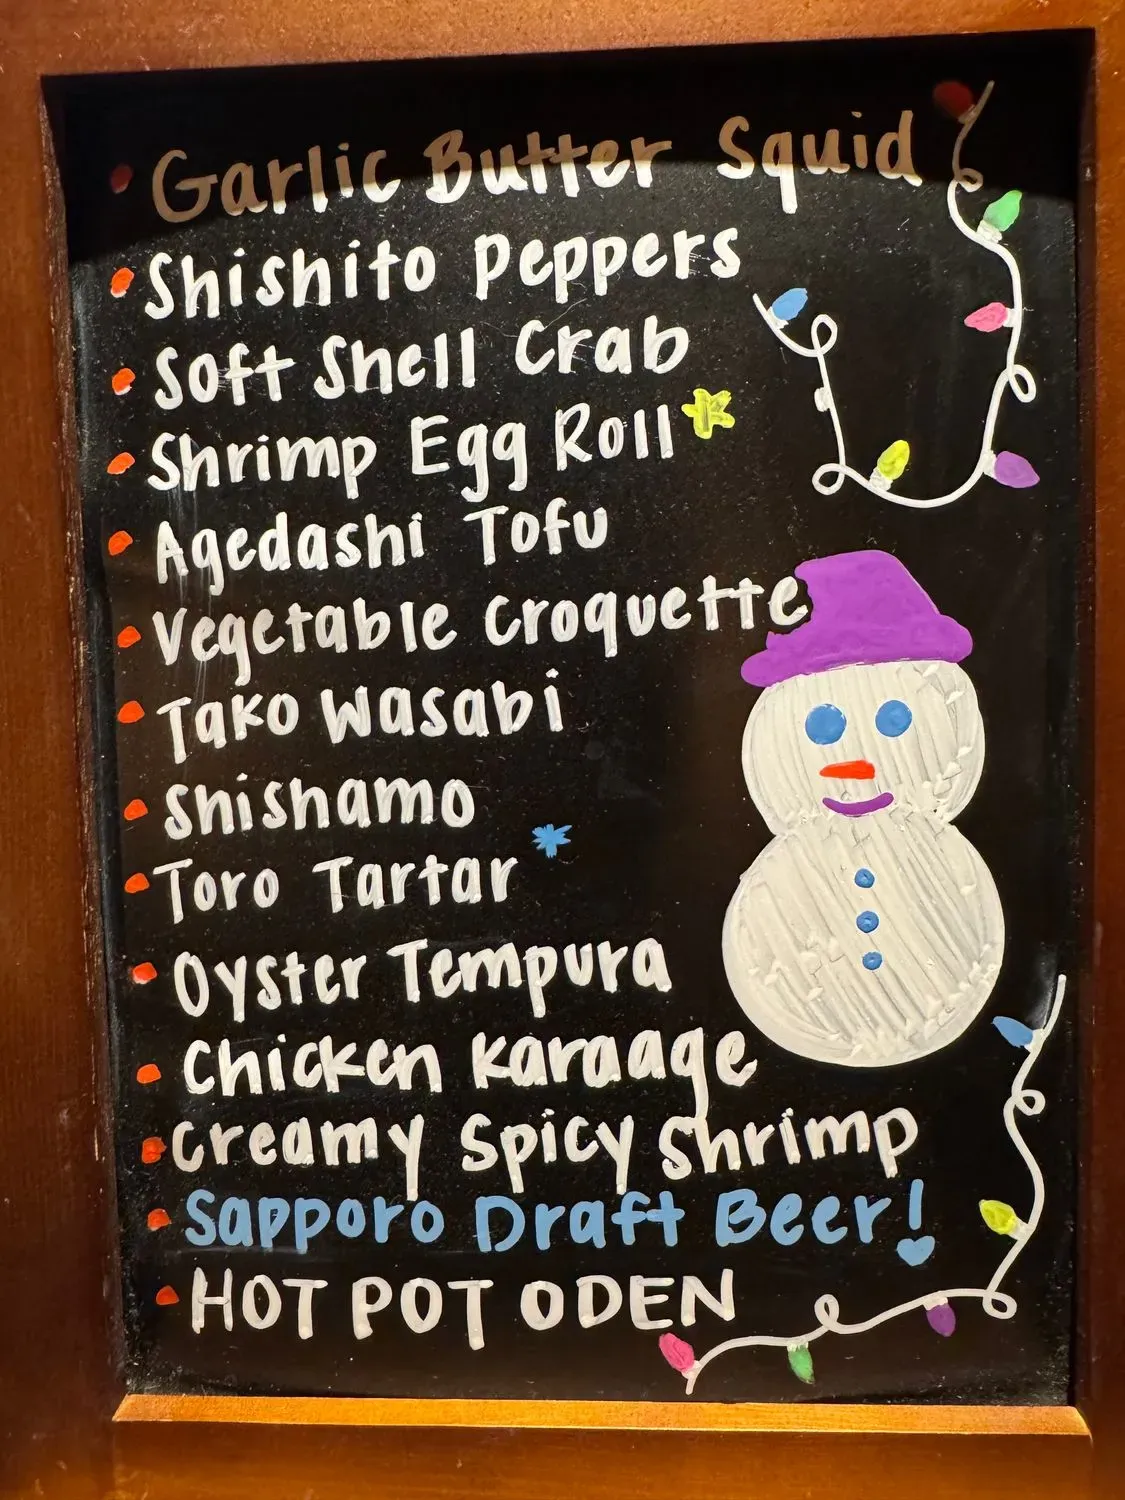 • Garlic Butter Squid
• Shishito Peppers
• Soft Shell Crab
• Shrimp Egg Roll
• Agedashi Tofu
• Vegetable Croquette
• Tako Wasabi
• Shishamo
• Toro Tartar
• Oyster Tempura
• Chicken Karaage
• Creamy Spicy Shrimp
• Sapporo Draft Beer!
• HOT POT ODEN